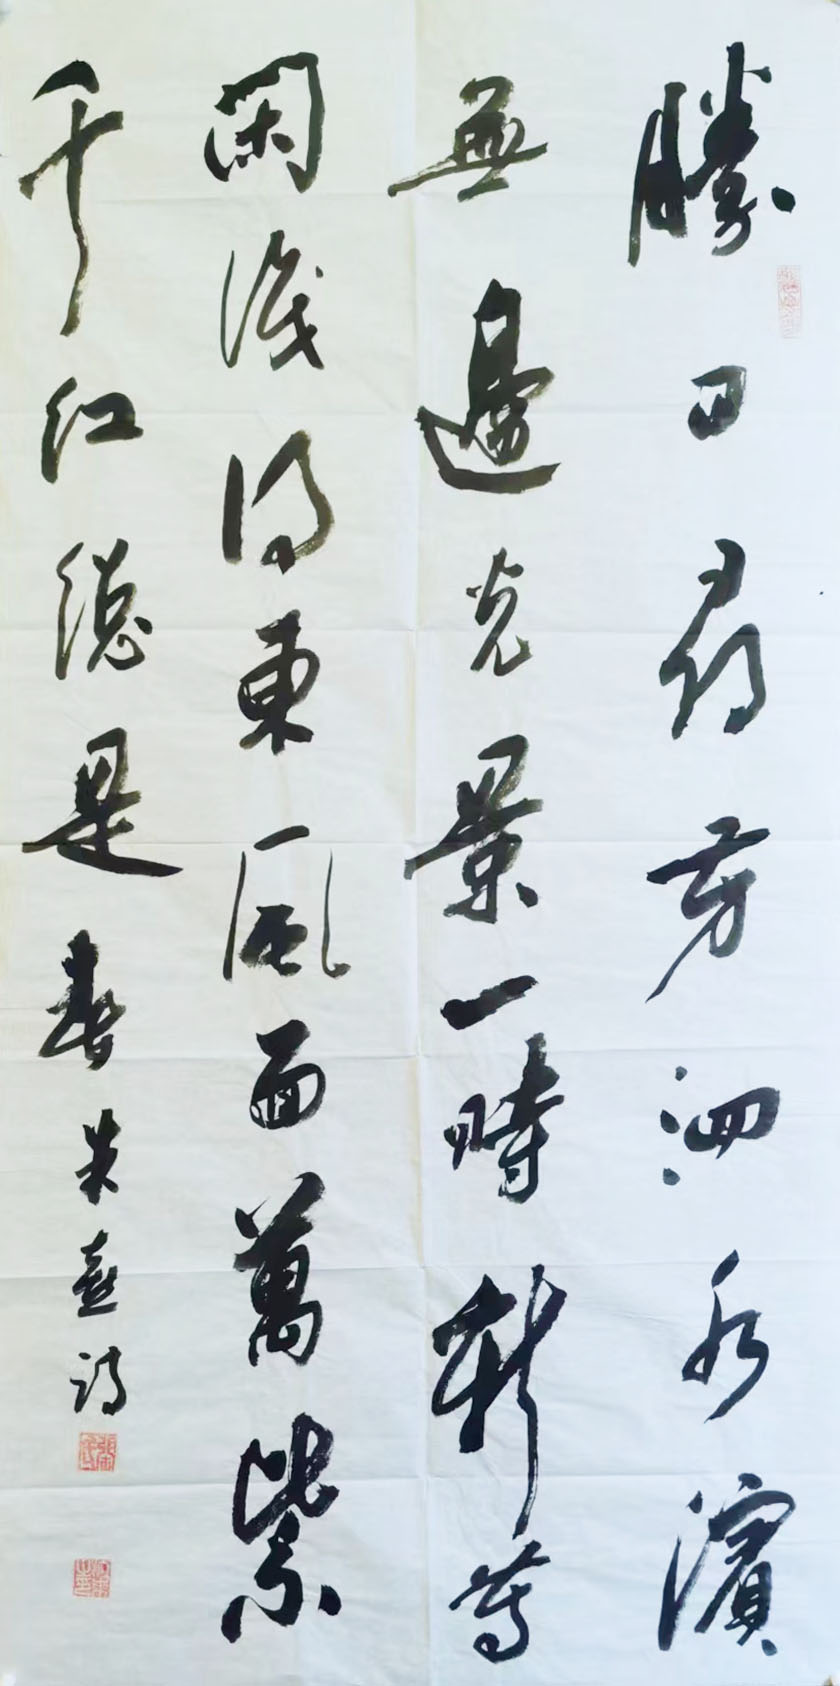 勝日尋芳泗水濱
無邊光景一時新等
閑識得東風面萬紫
千紅總是春朱熹詩